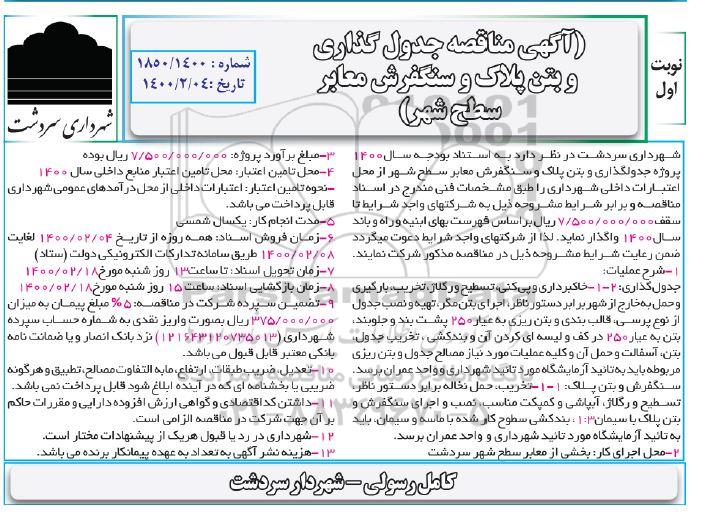 نوبت
اول
(آگهی مناقصه جدول گذاری
و بتن پلاک و سنگفرش معابر
سطح شهر)
شماره : ۱۸۵۰/۱۴۰۰
تاریخ :۱۴۰۰/۲/۰۴
شهرداری سردشت
شهرداری سردشت در نظر دارد به استناد بودجه سال ۱۴۰۰
پروژه جدولگذاری و بتن پلاک و سنگفرش معابر سطح شهر از محل
اعتبارات داخلی شهرداری را طبق مشخصات فنی مندرج در اسناد
مناقصه و برابر شرایط مشروحه ذیل به شرکتهای واجد شرایط تا
سقف ۷/۵۰۰/۰۰۰/۰۰۰ ریال براساس فهرست بهای ابنیه و راه و باند
سال ۱۴۰۰ واگذار نماید. لذا از شرکتهای واجد شرایط دعوت میگردد
ضمن رعایت شرایط مشروحه ذیل در مناقصه مذکور شرکت نمایند.
۱-شرح عملیات:
جدول گذاری: ۲-۱-خاکبرداری و پی کنی، تسطیح و رگلاژ، تخریب، بارگیری
و حمل به خارج از شهر برابر دستور ناظر، اجرای بتن مگر، تهیه و نصب جدول
از نوع پرسی، قالب بندی و بتن ریزی به عیار ۲۵۰ پشت بند و جلوبند
بتن به عیار ۲۵۰ در کف و لیسه ای کردن آن و بندکشی ، تخریب جدول،
بتن، آسفالت و حمل آن و کلیه عملیات مورد نیاز مصالح جدول و بتن ریزی
مربوطه باید به تائید آزمایشگاه مورد تائید شهرداری و واحد عمران برسد.
سنگفرش و بتن پلاک: ۱-۱-تخریب، حمل نخاله برابر دستور ناظر،
تسطیح و رگلاژ، آبپاشی و کمپکت مناسب، نصب و اجرای سنگفرش و
بتن پلاک با سیمان ۱:۳، بندکشی سطوح کار شده با ماسه و سیمان، باید
به تائید آزمایشگاه مورد تائید شهرداری و واحد عمران برسد.
۲-محل اجرای کار: بخشی از معابر سطح شهر سردشت
۳-مبلغ برآورد پروژه: ۷/۵۰۰/۰۰۰/۰۰۰ ریال بوده
۴-محل تامین اعتبار: محل تامین اعتبار منابع داخلی سال ۱۴۰۰
-نحوه تامین اعتبار: اعتبارات داخلی از محل درآمدهای عمومی شهرداری
قابل پرداخت می باشد.
۵-مدت انجام کار: یکسال شمسی
۶-زمان فروش اسناد: همه روزه از تاریخ ۱۴۰۰/۰۲/۰۴ لغایت
۱۴۰۰/۰۲/۰۸ طریق سامانه تدارکات الکترونیکی دولت (ستاد)
۷-زمان تحویل اسناد: تا ساعت ۱۳ روز شنبه مورخ ۱۴۰۰/۰۲/۱۸
۸-زمان بازگشایی اسناد: ساعت ۱۵ روز شنبه مورخ ۱۴۰۰/۰۲/۱۸
۹-تضمین سپرده شرکت در مناقصه: ۵% مبلغ پیمان به میزان
۳۷۵/۰۰۰/۰۰۰ ریال بصورت واریز نقدی به شماره حساب سپرده
شهرداری (۱۲۱۶۴۳۱۲۰۷۳۵۰۱۳) نزد بانک انصار و یا ضمانت نامه
بانکی معتبر قابل قبول می باشد.
۱۰-تعدیل، ضریب طبقات، ارتفاع، مابه التفاوت مصالح، تطبیق و هرگونه
ضریبی یا بخشنامه ای که در آینده ابلاغ شود قابل پرداخت نمی باشد.
۱۱-داشتن کد اقتصادی و گواهی ارزش افزوده دارایی و مقررات حاکم
بر آن جهت شرکت در مناقصه الزامی است.
۱۲-شهرداری در رد یا قبول هریک از پیشنهادات مختار است.
۱۳-هزینه نشر آگهی به تعداد به عهده پیمانکار برنده می باشد.
۰۲۱-۸۸۳۴۹۶۷۰-۵
کامل رسولی - شهردار سردشت